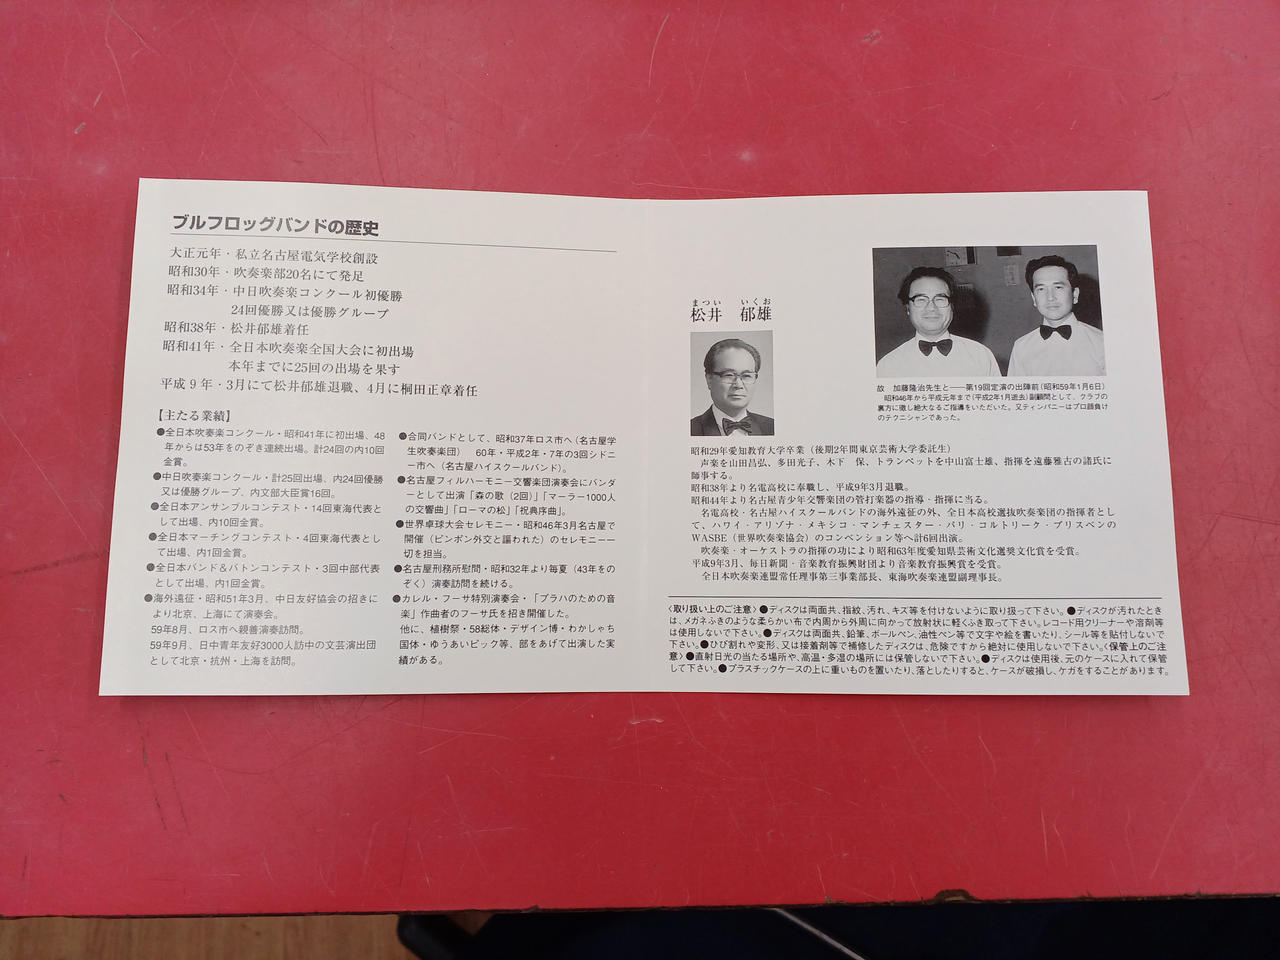 ブルフロッグバンドの歴史
大正元年・私立名古屋電気学校創設
昭和30年・吹奏楽部20名にて発足
昭和34年・中日吹奏楽コンクール初優勝
24回優勝又は優勝グループ
昭和38年・松井郁雄着任
昭和41年・全日本吹奏楽全国大会に初出場
本年までに25回の出場を果す
平成9年・3月にて松井郁雄退職、4月に桐田正章着任
【主たる業績】
●全日本吹奏楽コンクール・昭和41年に初出場、48
年からは53年をのぞき連続出場。計24回の内10回
金賞。
●中日吹奏楽コンクール・計25回出場、内24回優勝
又は優勝グループ、内文部大臣賞16回。
●全日本アンサンブルコンテスト・14回東海代表と
して出場、内10回金賞。
●全日本マーチングコンテスト・4回東海代表とし
て出場、内1回金賞。
●全日本バンド&バトンコンテスト・3回中部代表
として出場、内1回金賞。
●海外遠征・昭和51年3月、中日友好協会の招きに
より北京、上海にて演奏会。
59年8月、ロス市へ親善演奏訪問。
59年9月、日中青年友好3000人訪中の文芸演出団
として北京・杭州・上海を訪問。
●合同バンドとして、昭和37年ロス市へ（名古屋学
生吹奏楽団）　60年・平成2年・7年の3回シドニ
ー市へ（名古屋ハイスクールバンド）。
●名古屋フィルハーモニー交響楽団演奏会にバンダ
ーとして出演「森の歌（2回）」「マーラー1000人
の交響曲」「ローマの松」「祝典序曲」。
●世界卓球大会セレモニー・昭和46年3月名古屋で
開催（ピンポン外交と謳われた）のセレモニー一
切を担当。
●名古屋刑務所慰問・昭和32年より毎夏（43年をの
ぞく）演奏訪問を続ける。
●カレル・フーサ特別演奏会・「プラハのための音
楽」作曲者のフーサ氏を招き開催した。
他に、植樹祭・58総体・デザイン博・わかしゃち
国体・ゆうあいピック等、部をあげて出演した実
績がある。
まつい　いくお
松井　郁雄
故　加藤隆治先生と――第19回定演の出陣前（昭和59年1月6日）
昭和46年から平成元年まで（平成2年1月逝去）副顧問として、クラブの
裏方に徹し絶大なるご指導をいただいた。又ティンパニーはプロ顔負け
のテクニシャンであった。
昭和29年愛知教育大学卒業（後期2年間東京芸術大学委託生）
声楽を山田昌弘、多田光子、木下　保、トランペットを中山富士雄、指揮を遠藤雅古の諸氏に
師事する。
昭和38年より名電高校に奉職し、平成9年3月退職。
昭和44年より名古屋青少年交響楽団の管打楽器の指導・指揮に当る。
名電高校・名古屋ハイスクールバンドの海外遠征の外、全日本高校選抜吹奏楽団の指揮者とし
て、ハワイ・アリゾナ・メキシコ・マンチェスター・パリ・コルトリーク・ブリスベンの
WASBE（世界吹奏楽協会）のコンベンション等へ計6回出演。
吹奏楽・オーケストラの指揮の功により昭和63年度愛知県芸術文化選奨文化賞を受賞。
平成9年3月、毎日新聞・音楽教育振興財団より音楽教育振興賞を受賞。
全日本吹奏楽連盟常任理事第三事業部長、東海吹奏楽連盟副理事長。
〈取り扱い上のご注意〉●ディスクは両面共、指紋、汚れ、キズ等を付けないように取り扱って下さい。●ディスクが汚れたとき
は、メガネふきのような柔らかい布で内周から外周に向かって放射状に軽くふき取って下さい。レコード用クリーナーや溶剤等
は使用しないで下さい。●ディスクは両面共、鉛筆、ボールペン、油性ペン等で文字や絵を書いたり、シール等を貼付しないで
下さい。●ひび割れや変形、又は接着剤等で補修したディスクは、危険ですから絶対に使用しないで下さい。〈保管上のご注
意〉●直射日光の当たる場所や、高温・多湿の場所には保管しないで下さい。●ディスクは使用後、元のケースに入れて保管
して下さい。●プラスチックケースの上に重いものを置いたり、落としたりすると、ケースが破損し、ケガをすることがあります。